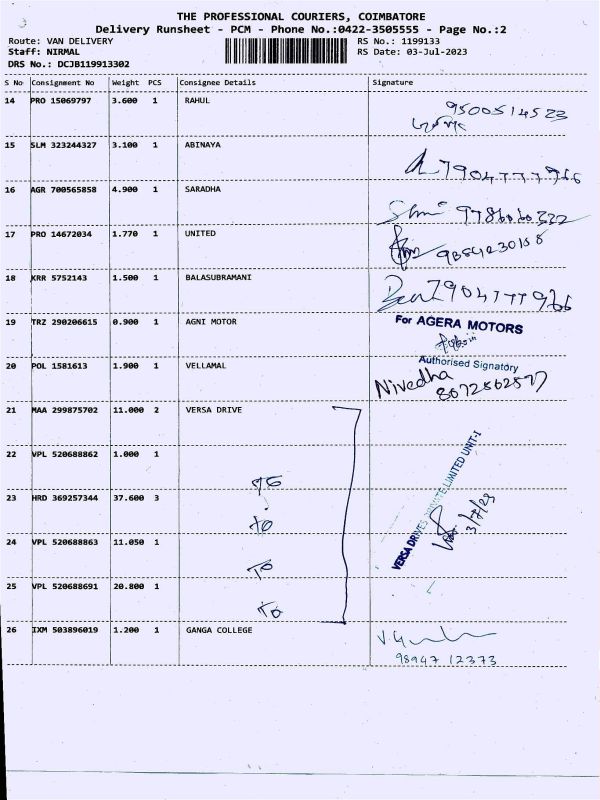 THE PROFESSIONAL COURIERS, COIMBATORE
Delivery Runsheet - PCM - Phone No.:0422-3505555 - Page No.:2
Route: VAN DELIVERY RS No.: 1199133
Staff: NIRMAL RS Date: 03-Jul-2023
DRS No.: DCJB119913302
S No Consignment No Weight PCS Consignee Details Signature
14 PRO 15069797 3.600 1 RAHUL 9500514523
15 SLM 323244327 3.100 1 ABINAYA 7904777966
16 AGR 700565858 4.900 1 SARADHA
17 PRO 14672034 1.770 1 UNITED
18 KRR 5752143 1.500 1 BALASUBRAMANI 7904777966
19 TRZ 290206615 0.900 1 AGNI MOTOR For AGERA MOTORS
Authorised Signatory
20 POL 1581613 1.900 1 VELLAMAL Nivedha
8072562577
21 MAA 299875702 11.000 2 VERSA DRIVE
22 VPL 520688862 1.000 1
23 HRD 369257344 37.600 3
VERSA DRIVES PRIVATE LIMITED UNIT-I
3/7/23
24 VPL 520688863 11.050 1
25 VPL 520688691 20.800 1
26 IXM 503896019 1.200 1 GANGA COLLEGE
98947 12373